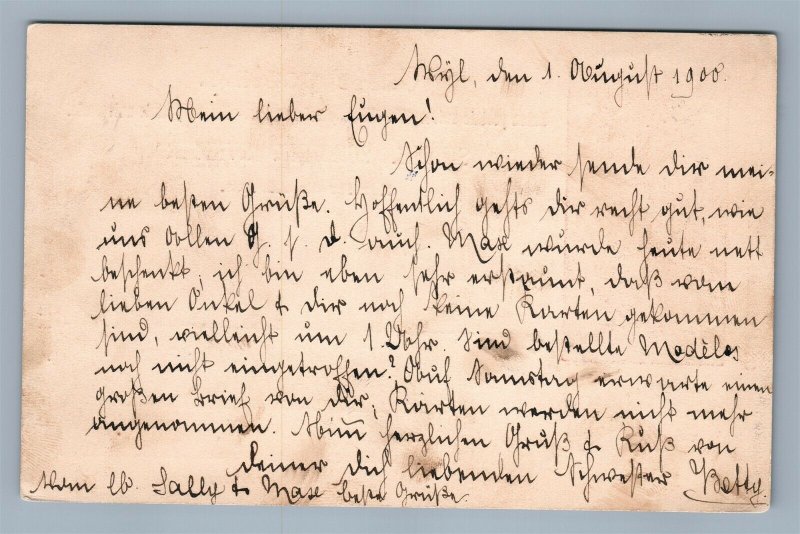 Wyl, den 1. August 1900.
Mein lieber Eugen!
Schon wieder sende dir mei-
ne besten Grüße. Hoffentlich gehts dir recht gut, wie
uns Allen G. s. d. auch. Max wurde heute nett
beschenkt, ich bin eben sehr erstaunt, daß vom
lieben Onkel & dir noch keine Karten gekommen
sind, vielleicht um 1 Uhr. Sind bestellte Modèles
noch nicht eingetroffen? Auf Samstag erwarte einen
großen Brief von dir, Karten werden nicht mehr
angenommen. Nimm herzlichen Gruß & Kuß von
deiner dich liebenden Schwester Betty.
Vom lb. Sally & Max beste Grüße.